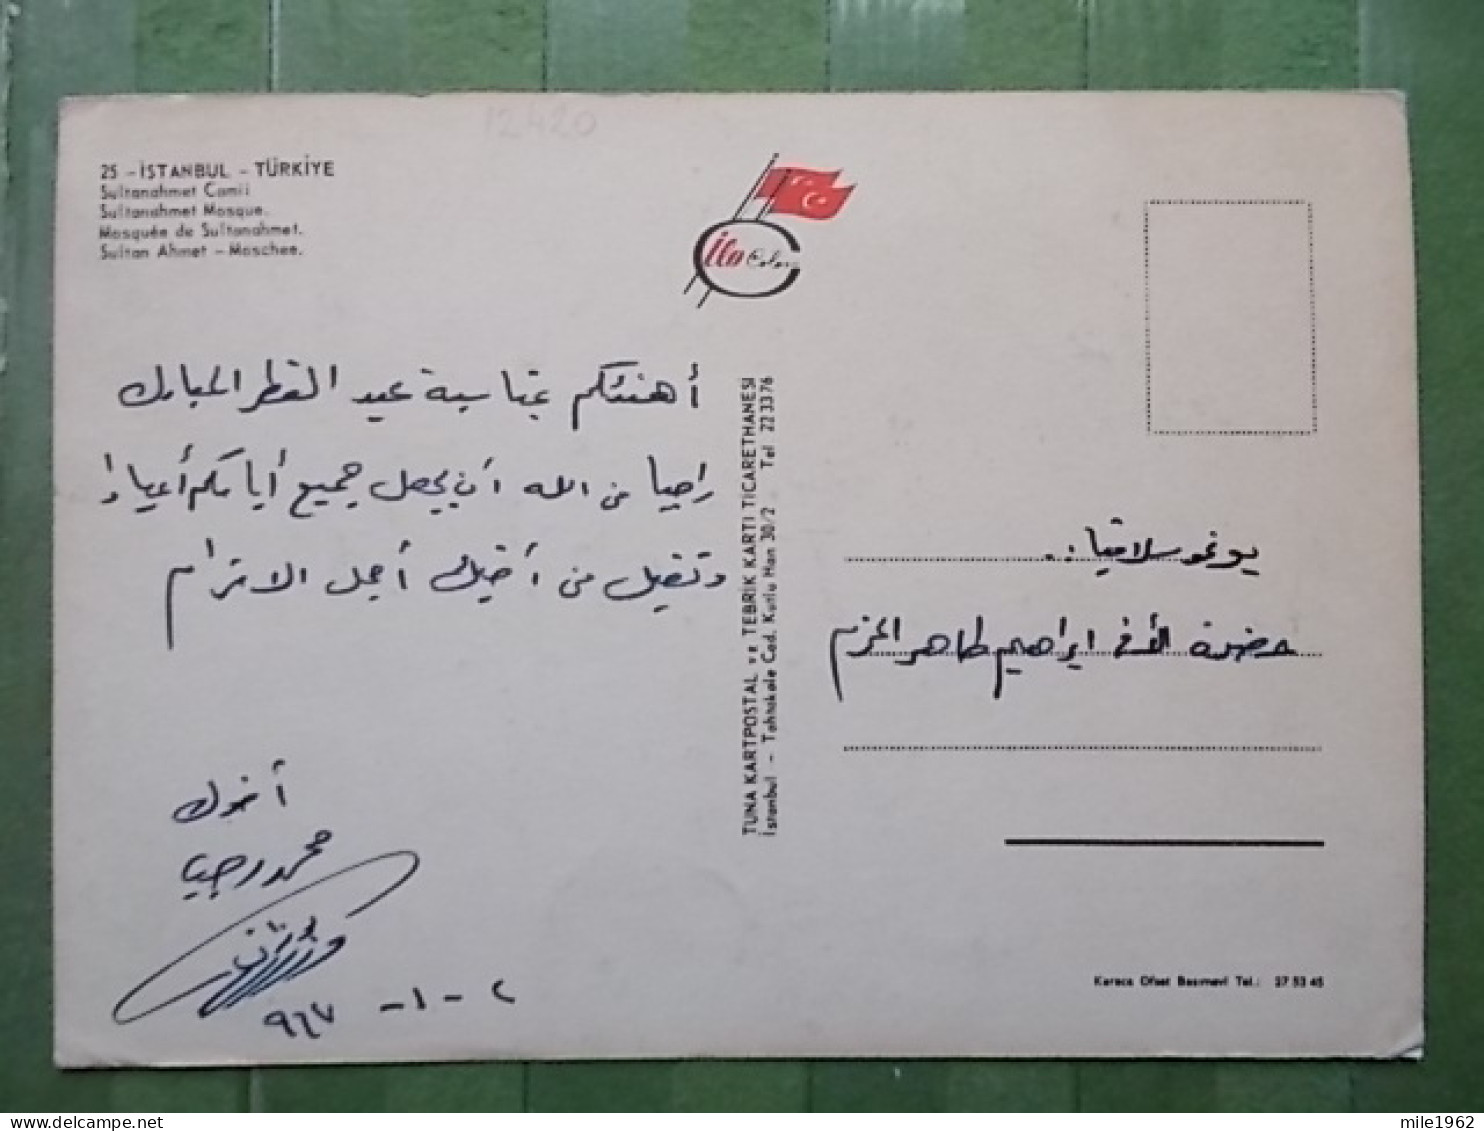 12420
25 - İSTANBUL - TÜRKİYE
Sultanahmet Camii
Sultanahmet Mosque.
Mosquée de Sultanahmet.
Sultan Ahmet - Moschee.
Cilo Color
أهنئكم بمناسبة عيد الفطر المبارك
راجيا من الله أن يجعل جميع أيامكم أعيادا
وتقبل من أخيك أجمل الاحترام
أخوك
محمد رجب
٢ - ١ - ٩٦٧
TUNA KARTPOSTAL ve TEBRİK KARTI TİCARETHANESİ
İstanbul - Tahtakale Cad. Kutlu Han 30/2 Tel 22 33 76
يوغوسلافيا :.
حضرة الأخ ابراهيم طاهر المحترم
Karaca Ofset Basımevi Tel.: 27 53 45
mile1962